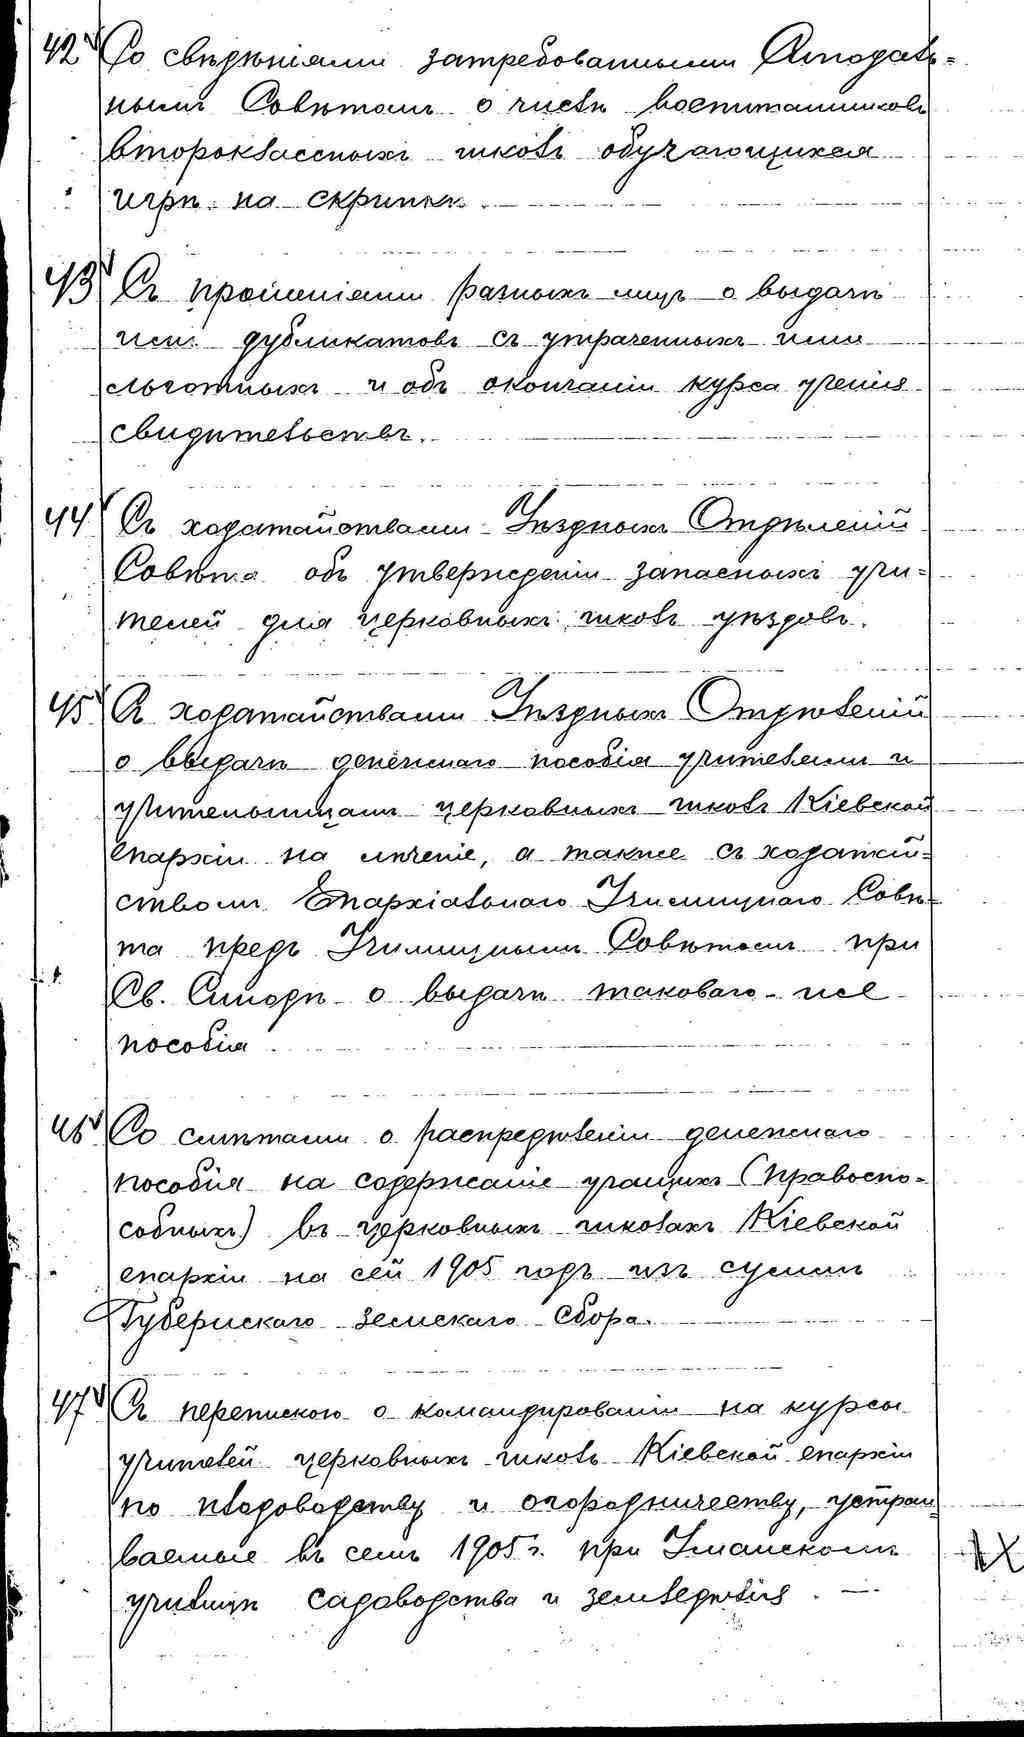 42 Со свѣдѣніями затребованными Синодаль=
нымъ Совѣтомъ о числѣ воспитанниковъ
второклассныхъ школъ обучающихся
игрѣ на скрипкѣ.
43 Съ прошеніями разныхъ лицъ о выдачѣ
имъ дубликатовъ съ утраченныхъ ими
льготныхъ и объ окончаніи курса ученія
свидѣтельствъ.
44 Съ ходатайствами Уѣздныхъ Отдѣленій
Совѣта объ утвержденіи запасныхъ учи=
телей для церковныхъ школъ уѣздовъ.
45 Съ ходатайствами Уѣздныхъ Отдѣленій
о выдачѣ денежнаго пособія учителямъ и
учительницамъ церковныхъ школъ Кіевской
епархіи на лѣченіе, а также съ ходатай=
ствомъ Епархіальнаго Училищнаго Совѣ=
та предъ Училищнымъ Совѣтомъ при
Св. Синодѣ о выдачѣ таковаго же
пособія
46 Со смѣтами о распредѣленіи денежнаго
пособія на содержаніе учащихъ (правоспо=
собныхъ) въ церковныхъ школахъ Кіевской
епархіи на сей 1905 годъ изъ суммъ
Губернскаго земскаго сбора.
47 Съ перепискою о командированіи на курсы
учителей церковныхъ школъ Кіевской епархіи
по плодоводству и огородничеству, устраи=
ваемые въ семъ 1905 г. при Уманскомъ
училищѣ садоводства и земледѣлія.